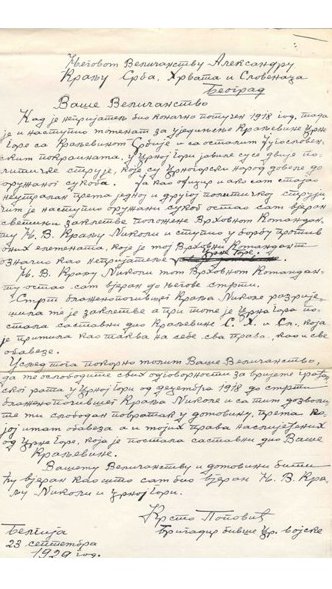 Његовом Величанству Александру
Краљу Срба, Хрвата и Словенаца
Београд
Ваше Величанство
Кад је непријатељ био коначно потучен 1918 год., тада
је и наступио моменат за уједињење Краљевине Црне
Горе са Краљевином Србије и са осталим југословен-
ским покрајинама. У Црној Гори јавише се двије по-
литичке струје, које су Црногорски народ довеле до
оружаног сукоба. Ја као официр и ако сам стојао
неутралан према једној и другој политичкој струји,
чим је наступио оружани сукоб остао сам вјеран
светињи заклетве положене Врховном Команданту
Њ. В. Краљу Николи и ступио у борбу против
оних елемената, које је тој Врховни Командант
означио као непријатеље Црне Горе.
Њ. В. Краљу Николи том Врховном Командан-
ту остао сам вјеран до његове смрти.
Смрт блаженопочившег Краља Николе разрије-
шила ме је заклетве а при томе је Црна Гора по-
стала саставни дио Краљевине С. Х. и Сл. која
је примила као таква на себе сва права, као и све
обавезе.
Усљед тога покорно молим Ваше Величанство,
да ме ослободите свих одговорности за вријеме грађан-
ског рата у Црној Гори од децембра 1918 до смрти
блаженопочившег Краља Николе и са тим дозволи-
те ми слободан повратак у домовину, према ко-
јој имам обавеза а и мојих права наслијеђених
од Црне Горе, која је постала саставни дио Ваше
Краљевине.
Вашему Величанству и домовини бити
ћу вјеран као што сам био вјеран Њ. В. Кра-
љу Николи и Црној Гори.
Крсто Поповић
Бригадир бивше Цр. војске
Белгија
23 септембра
год.